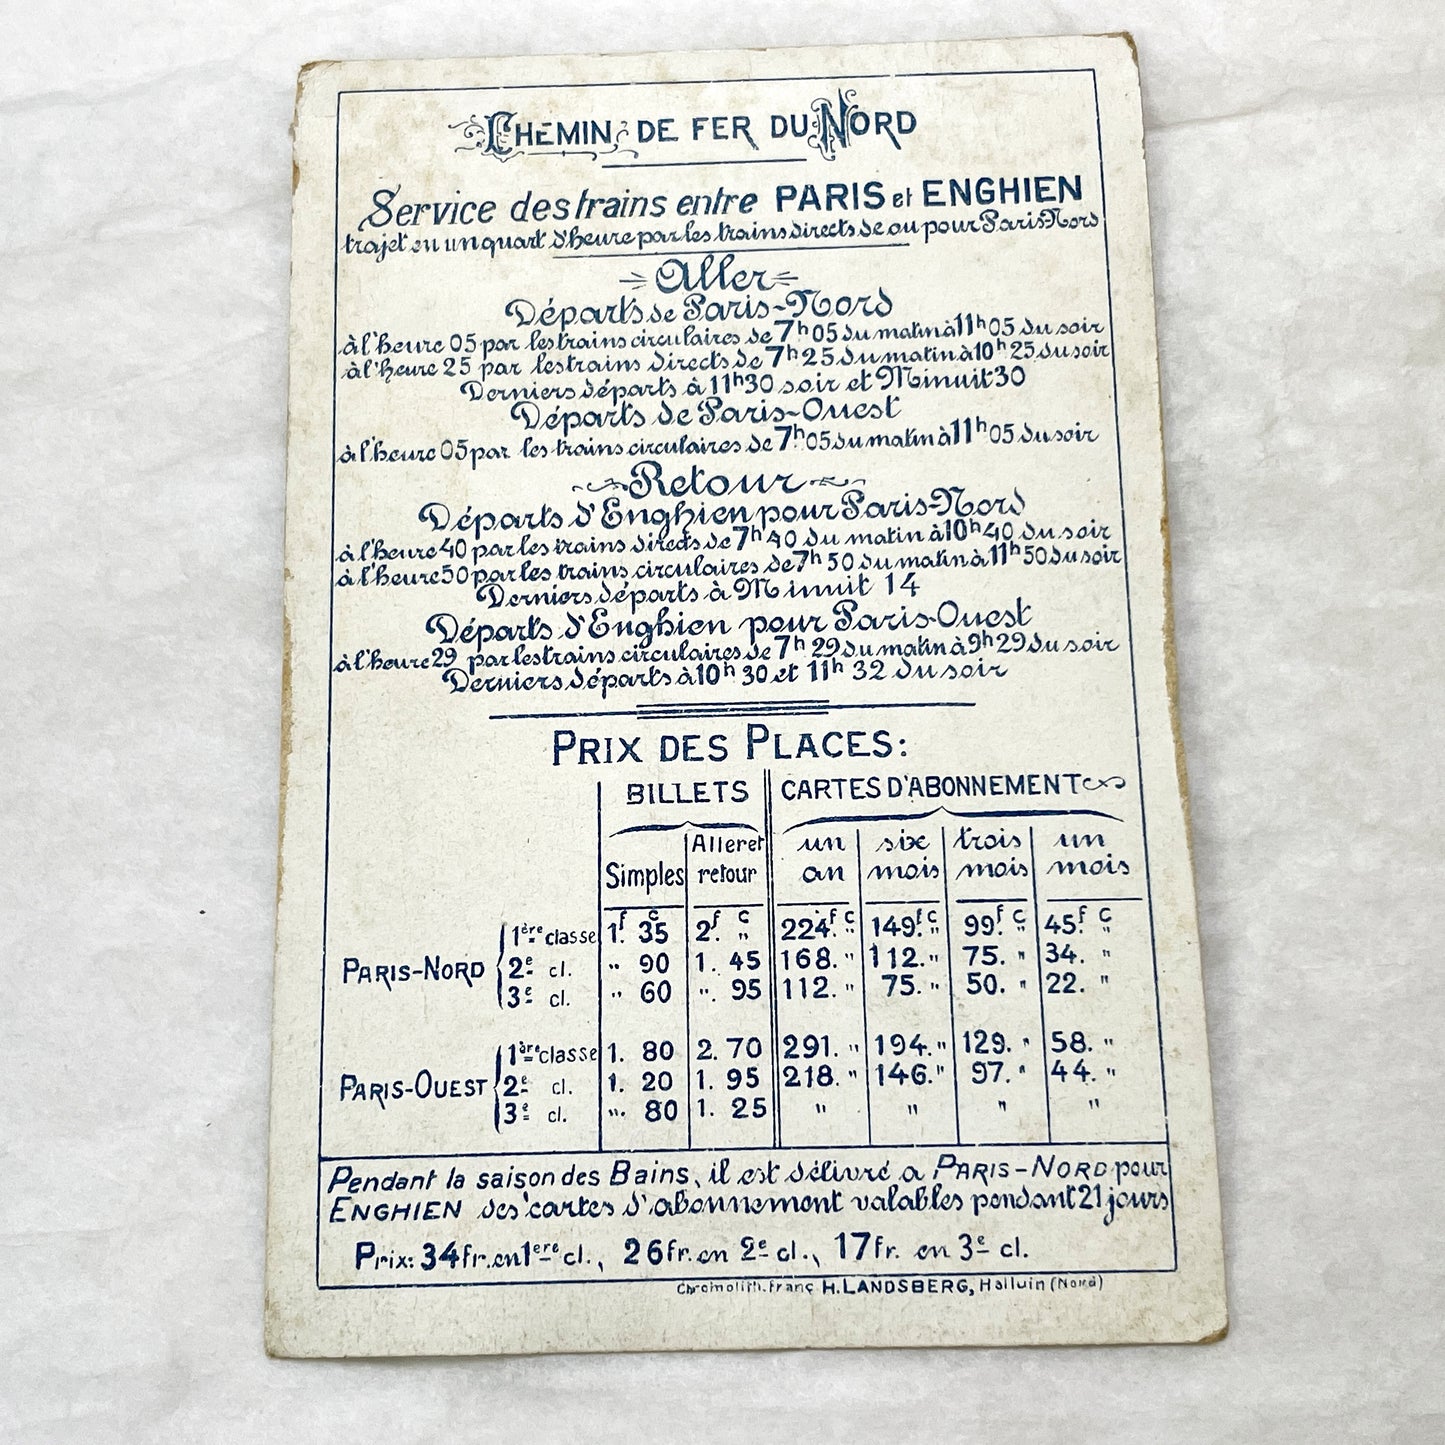 CHEMIN DE FER DU NORD
Service des trains entre PARIS et ENGHIEN
trajet en un quart d'heure par les trains directs de ou pour Paris-Nord
Aller
Départs de Paris-Nord
à l'heure 05 par les trains circulaires de 7h 05 du matin à 11h 05 du soir
à l'heure 25 par les trains directs de 7h 25 du matin à 10h 25 du soir
Derniers départs à 11h30 soir et Minuit 30
Départs de Paris-Ouest
à l'heure 05 par les trains circulaires de 7h 05 du matin à 11h 05 du soir
Retour
Départs d'Enghien pour Paris-Nord
à l'heure 40 par les trains directs de 7h 40 du matin à 10h 40 du soir
à l'heure 50 par les trains circulaires de 7h 50 du matin à 11h 50 du soir
Derniers départs à Minuit 14
Départs d'Enghien pour Paris-Ouest
à l'heure 29 par les trains circulaires de 7h 29 du matin à 9h 29 du soir
Derniers départs à 10h 30 et 11h 32 du soir
PRIX DES PLACES:
BILLETS CARTES D'ABONNEMENT
Simples Aller et retour un an six mois trois mois un mois
PARIS-NORD
1ère classe 1f. 35c 2f. "c 224f. "c 149f. "c 99f. "c 45f. "c
2e cl. " 90 1. 45 168. " 112. " 75. " 34. "
3e cl. " 60 ". 95 112. " 75. " 50. " 22. "
PARIS-OUEST
1ère classe 1. 80 2. 70 291. " 194. " 129. " 58. "
2e cl. 1. 20 1. 95 218. " 146. " 97. " 44. "
3e cl. ". 80 1. 25 " " " "
Pendant la saison des Bains, il est délivré a PARIS-NORD pour
ENGHIEN des cartes d'abonnement valables pendant 21 jours
Prix: 34fr. en 1ere cl., 26fr. en 2e cl., 17fr. en 3e cl.
Chromolith. Franç H. LANDSBERG, Halluin (Nord)